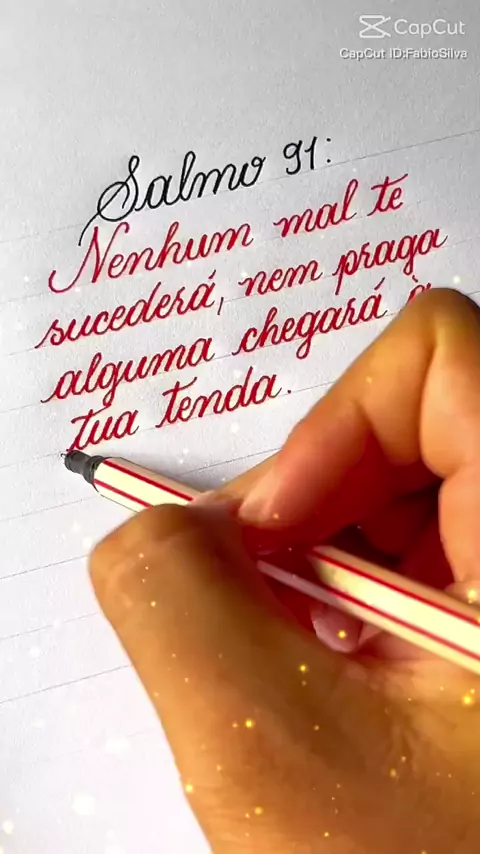 CapCut
CapCut ID:FabioSilva
Salmo 91:
Nenhum mal te
sucederá, nem praga
alguma chegará à
tua tenda.